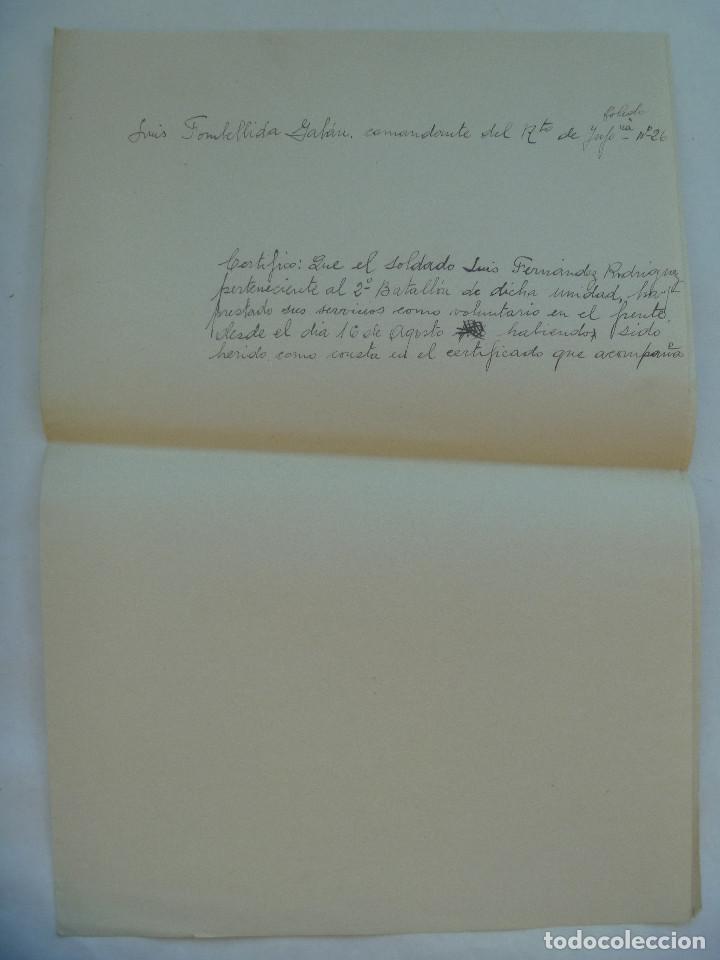 Toledo
Luis Fombellida Galán. comandante del Rto de Infª Nº 26
Certifico: Que el soldado Luis Fernández Rodríguez
perteneciente al 2º Batallón de dicha unidad, ha
prestado sus servicios como voluntario en el frente
desde el dia 16 de Agosto habiendo sido
herido como consta en el certificado que acompaña
todocoleccion